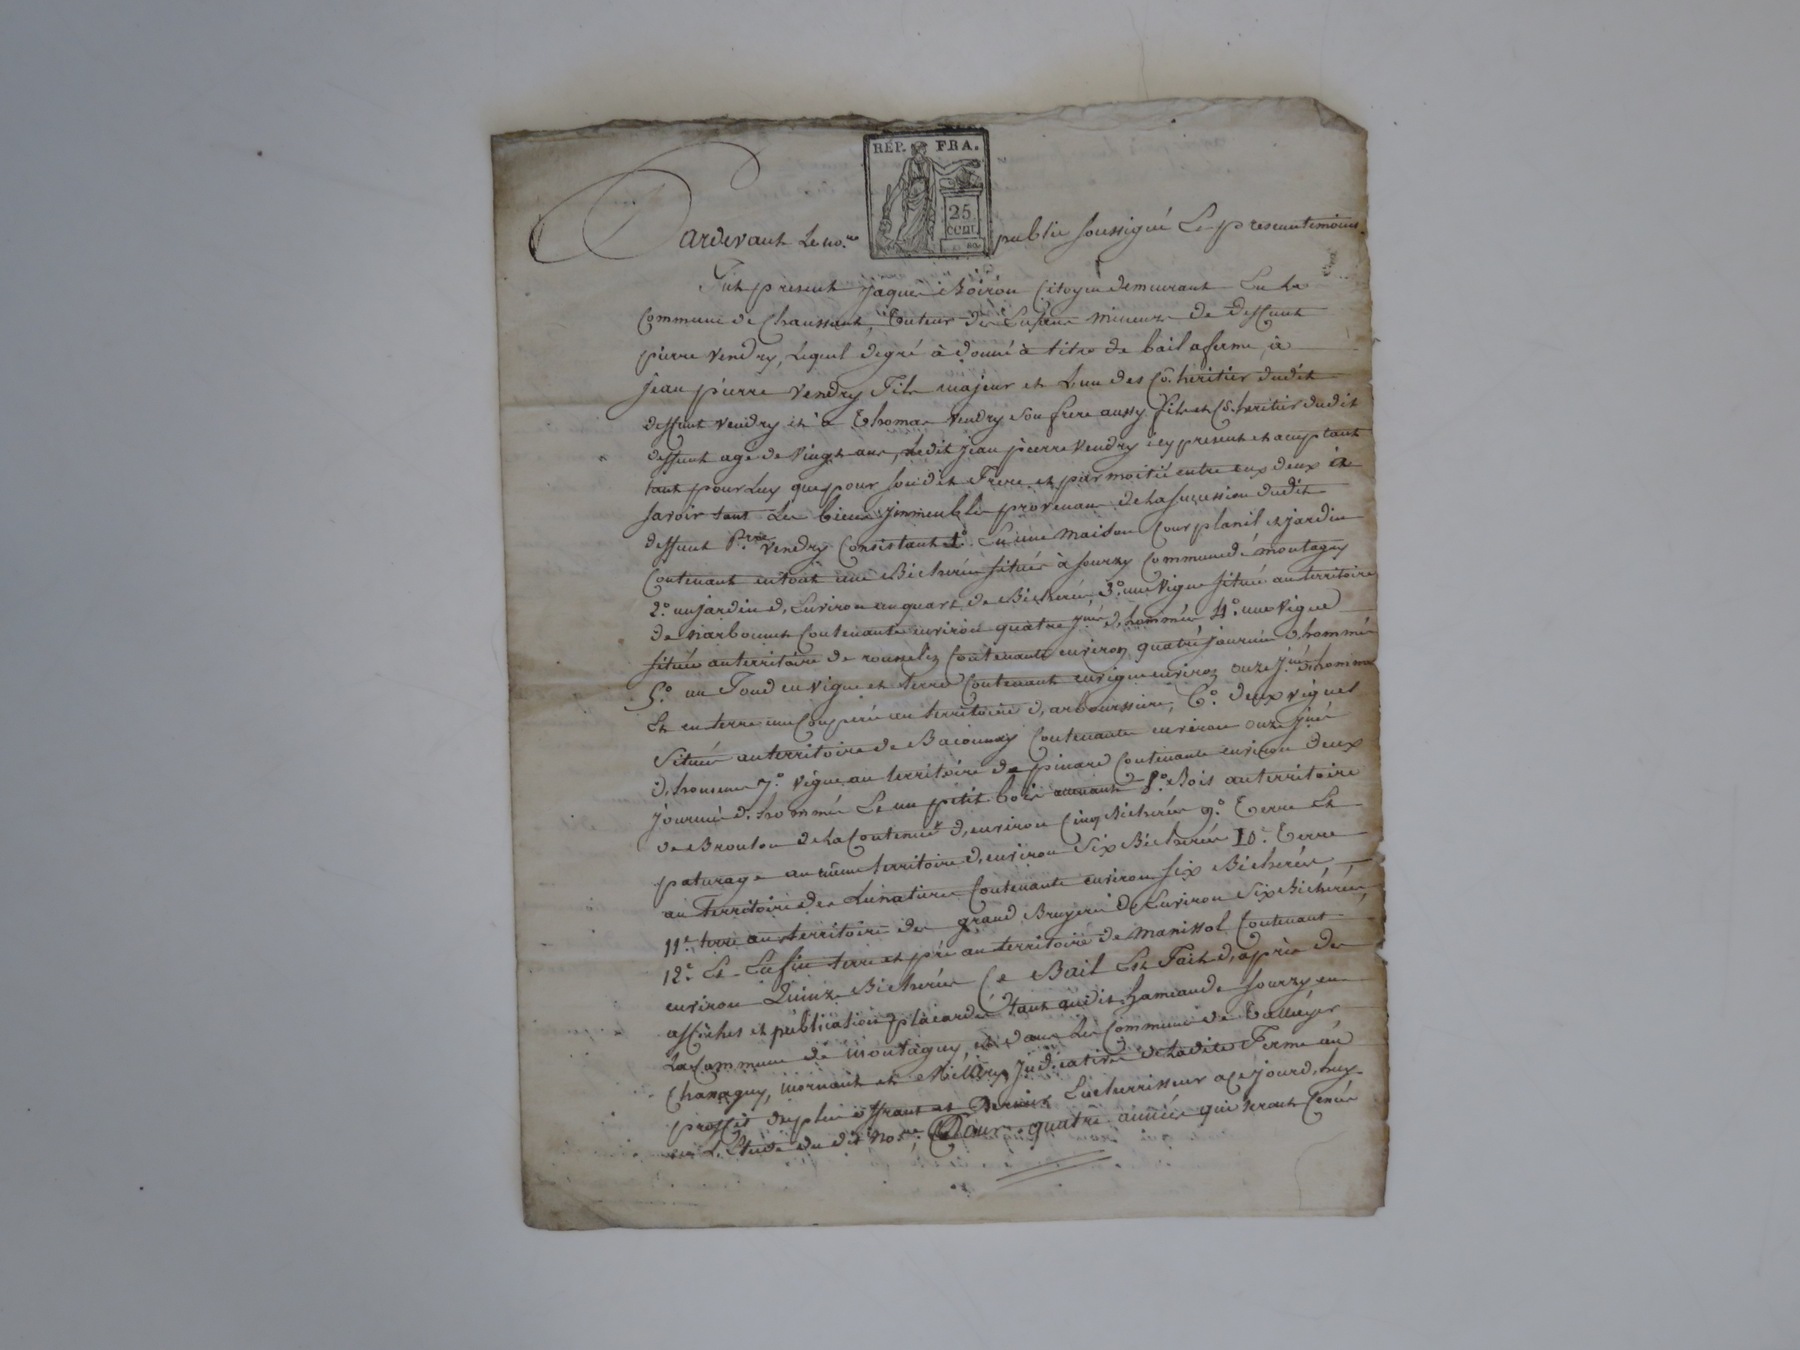 RÉP. FRA.
25
cent.
Pardevant Le no.re public soussigné Et présent temoins.
Fut présent jaques Boiron Citoyen demeurant En La
Commune de Chaussant, Tuteur des Enfans mineurs de deffunt
pierre Vendry, Lequel degré à donné à titre de bail a ferme, à
jean pierre Vendry Fils majeur et L'un des Co.héritier dudit
deffunt Vendry et à Thomas Vendry son frere aussy fils et Co.héritier dudit
deffunt agé de Vingt ans, Ledit jean pierre Vendry icy present et acceptant
tant pour Luy que pour sondit Frere et par moitié entre eux deux à
savoir tant Les biens jmmeubles provenans de La sucession dudit
deffunt P.rre Vendry Consistant 1.° En une maison Cour planil et jardin
Contenant entout une Bicherée située à sourzy Commune de montagny
2.° un jardin d'Environ un quart de Bicherée, 3.° une Vigne située au territoire
de narbonnet Contenante environ quatre j.née d'hommée 4.° une Vigne
située au territoire de Contenante environ quatre journée d'hommée
5.° un Fond en vigne et terre Contenant en vigne environ onze j.née d'homme
Et en terre une Couperée au territoire d'arboussiere, 6.° deux vignes
Située au territoire de Contenante environ onze j.née
d'homme 7.° Vigne au territoire de pinard Contenante environ deux
journée d'hommée Et un petit bois attenant 8.° Bois au territoire
de Brouton de La Contenue d'environ Cinq Bicherée 9.° Terre Et
paturage au même territoire d'environ Six Bicherée 10.° Terre
au territoire de Lunature Contenante environ six Bicherée
11.e terre au territoire de grand Bruyere de Environ Six Bicherée,
12.e Et Enfin terre et pré au territoire de manissol Contenant
environ Quinze Bicherée Ce Bail Est Fait d'après de
affiches et publication placardée tant audit hameau de sourzy en
La Commune de montagny, et dans Les Commune de Taluyer
Chanagny, mornant et Millery, judicative de Ladite Ferme au
proffit du plus offrant et Dernier Encherisseur a Cejourd'huy
en L'Etude du dit no.re, Pour quatre année qui seront